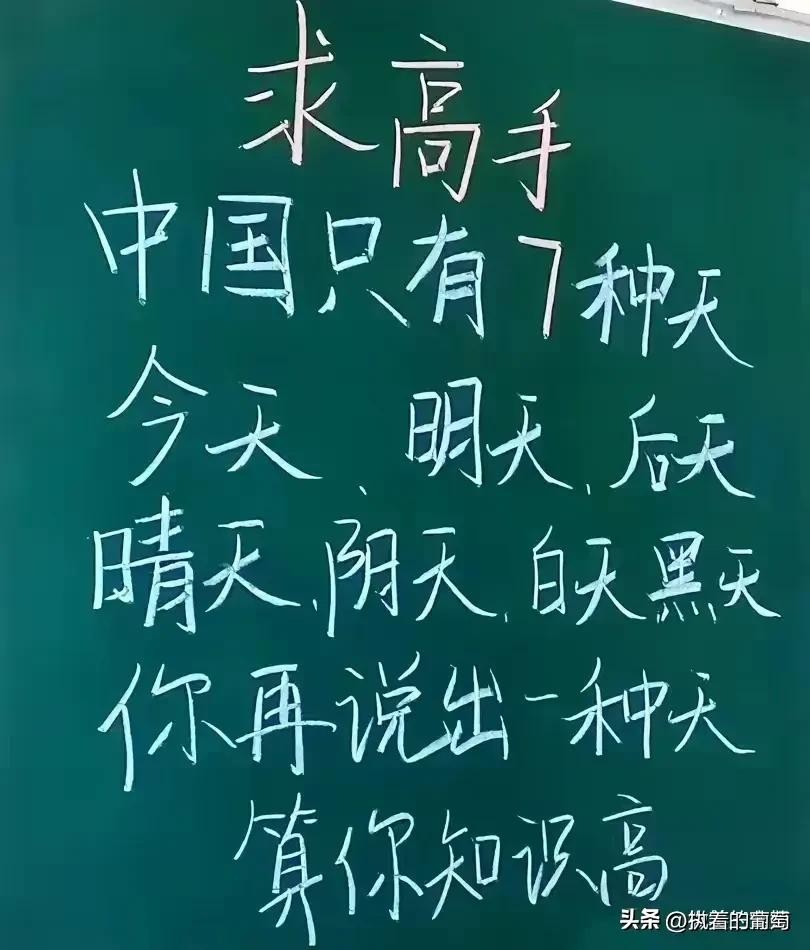 求高手
中国只有7种天
今天、明天、后天
晴天、阴天、白天黑天
你再说出一种天
算你知识高
头条 @执着的葡萄